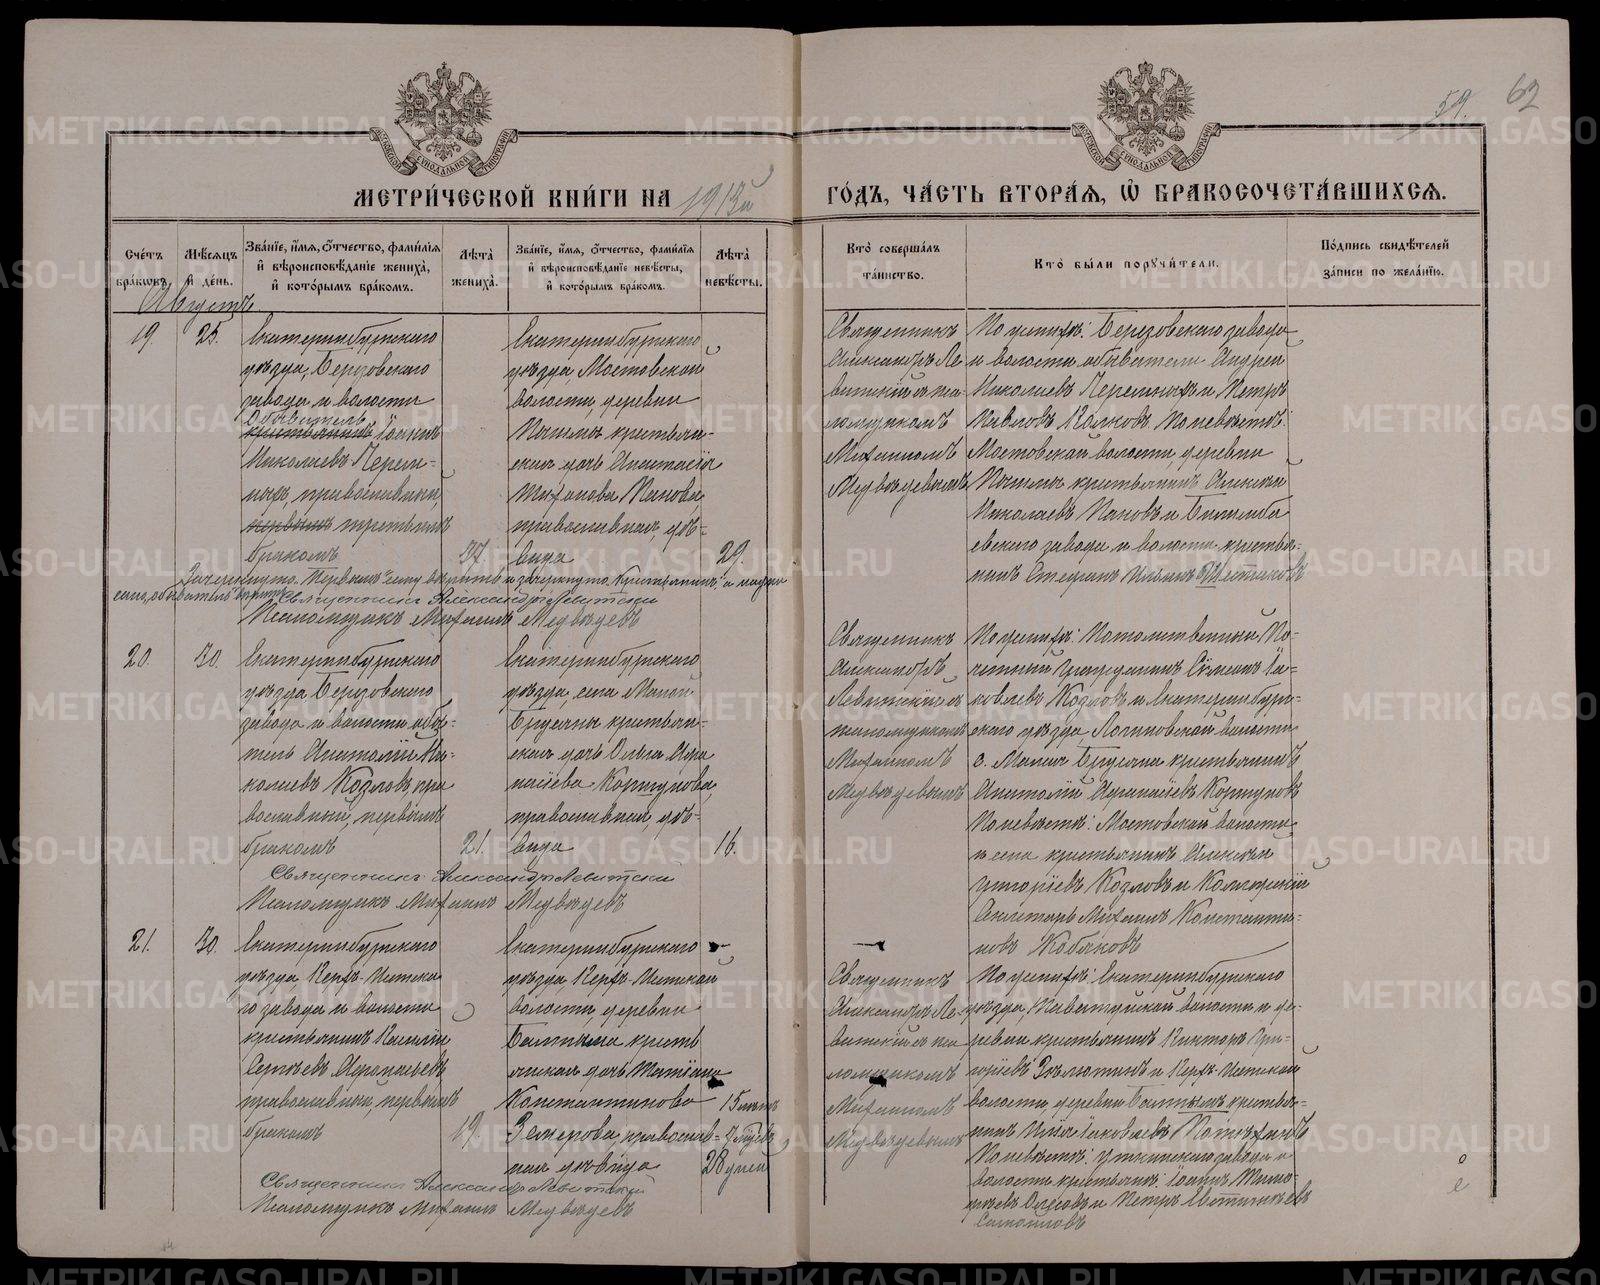 59.
62
МЕТРИ́ЧЕСКОЙ КНИ́ГИ НА 1913й
ГО́ДЪ, ЧА́СТЬ ВТОРА́Я, Ѽ БРАКОСОЧЕТА́ВШИХСѦ.
Сче́тъ бра́ковъ.
Мѣ́сяцъ и де́нь.
Зва́нїе, и́мѧ, ѻ́тчество, фами́лїѧ и вѣроисповѣ́данїе жениха̀, и кото́рымъ бра́комъ.
Лѣ́та жениха̀.
Зва́нїе, и́мѧ, ѻ́тчество, фами́лїѧ и вѣроисповѣ́данїе невѣ́сты, и кото́рымъ бра́комъ.
Лѣ́та невѣ́сты.
Кто̀ соверша́лъ та́инство.
Кто̀ бы́ли порꙋчи́тели.
По́дпись свидѣ́телей за́писи по жела́нїю.
Августъ
19.
25.
Екатеринбургскаго
уѣзда, Березовскаго
завода и волости
обыватель
крестьянинъ Іоаннъ
Николаевъ
православный,
первымъ третьимъ
бракомъ
37.
Екатеринбургскаго
уѣзда, Мостовской
волости, деревни
крестьян-
ская дочь Анастасія
Панова,
православная, дѣ-
вица
29.
Священникъ
Александръ Ле-
витскій съ пса-
ломщикомъ
Михаиломъ
Медвѣдевымъ
По женихѣ: Березовскаго завода
и волости обыватели Андрей
Николаевъ и Петръ
Павловъ По невѣстѣ:
Мостовской волости, деревни
крестьянинъ Алексѣй
Николаевъ Пановъ и Билимба
евскаго завода и волости крестья-
нинъ Стефанъ
Зачеркнуто „Первымъ" зачеркнуто „Крестьянинъ" а
Священникъ Александръ Левитскій
Псаломщикъ Михаилъ Медвѣдевъ
20.
30.
Екатеринбургскаго
уѣзда Березовскаго
завода и волости обыва-
тель Анатолій Ни-
колаевъ Козловъ, пра
вославный, первымъ
бракомъ
21.
Екатеринбургскаго
уѣзда, села Малой
Брусяны крестьян-
ская дочь Ольга Афа
насіева Коршунова,
православная, дѣ-
вица
16.
Священникъ
Александръ
Левитскій съ
псаломщикомъ
Михаиломъ
Медвѣдевымъ
По женихѣ: Потомственный По-
четный Гражданинъ Сѵмеонъ Іа-
ковлевъ Козловъ и Екатеринбург-
скаго уѣзда, Логиновской волости
с. Малая Брусяна крестьянинъ
Анатолій Афанасіевъ Коршуновъ
По невѣстѣ: Мостовской волости
и села крестьянинъ Алексѣй
Григоріевъ Козловъ и Коллежскій
Секретарь Михаилъ Константи-
новъ Кобяковъ
Священникъ Александръ Левитскій
Псаломщикъ Михаилъ Медвѣдевъ
21.
30.
Екатеринбургскаго
уѣзда Верхъ-Исетска
го завода и волости
крестьянинъ Василій
Сергѣевъ
православный, первымъ
бракомъ
19.
Екатеринбургскаго
уѣзда Верхъ-Исетской
волости, деревни
Балтыма кресть
янская дочь Татіана
Константинова
православ-
ная дѣвица
15 лѣтъ
7 мѣсяц.
28 дней
Священникъ
Александръ Ле-
витскій съ пса
ломщикомъ
Михаиломъ
Медвѣдевымъ
По женихѣ: Екатеринбургскаго
уѣзда, волости и де-
ревни крестьянинъ Викторъ Гри-
горіевъ и Верхъ-Исетской
волости, деревни Балтымъ крестья-
нинъ Илія Іаковлевъ
По невѣстѣ: Уткинскаго завода и
волости крестьян. Іоаннъ Тимо-
ѳеевъ и Петръ
Самойловъ
Священникъ Александръ Левитскій
Псаломщикъ Михаилъ Медвѣдевъ